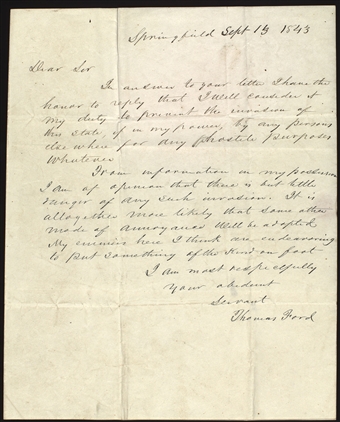 Springfield Sept 13 1843
Dear Sir
In answer to your letter I have the
honor to reply that I will consider it
my duty to prevent the invasion of
this State, if in my power, by any persons
elsewhere for any hostile purposes
whatever
From information in my possession
I am of opinion that there is but little
danger of any such invasion. It is
altogether more likely that some other
mode of annoyance will be adopted
My enemies here I think are endeavoring
to put something of the kind on foot
I am most respectfully
Your obedient
Servant
Thomas Ford